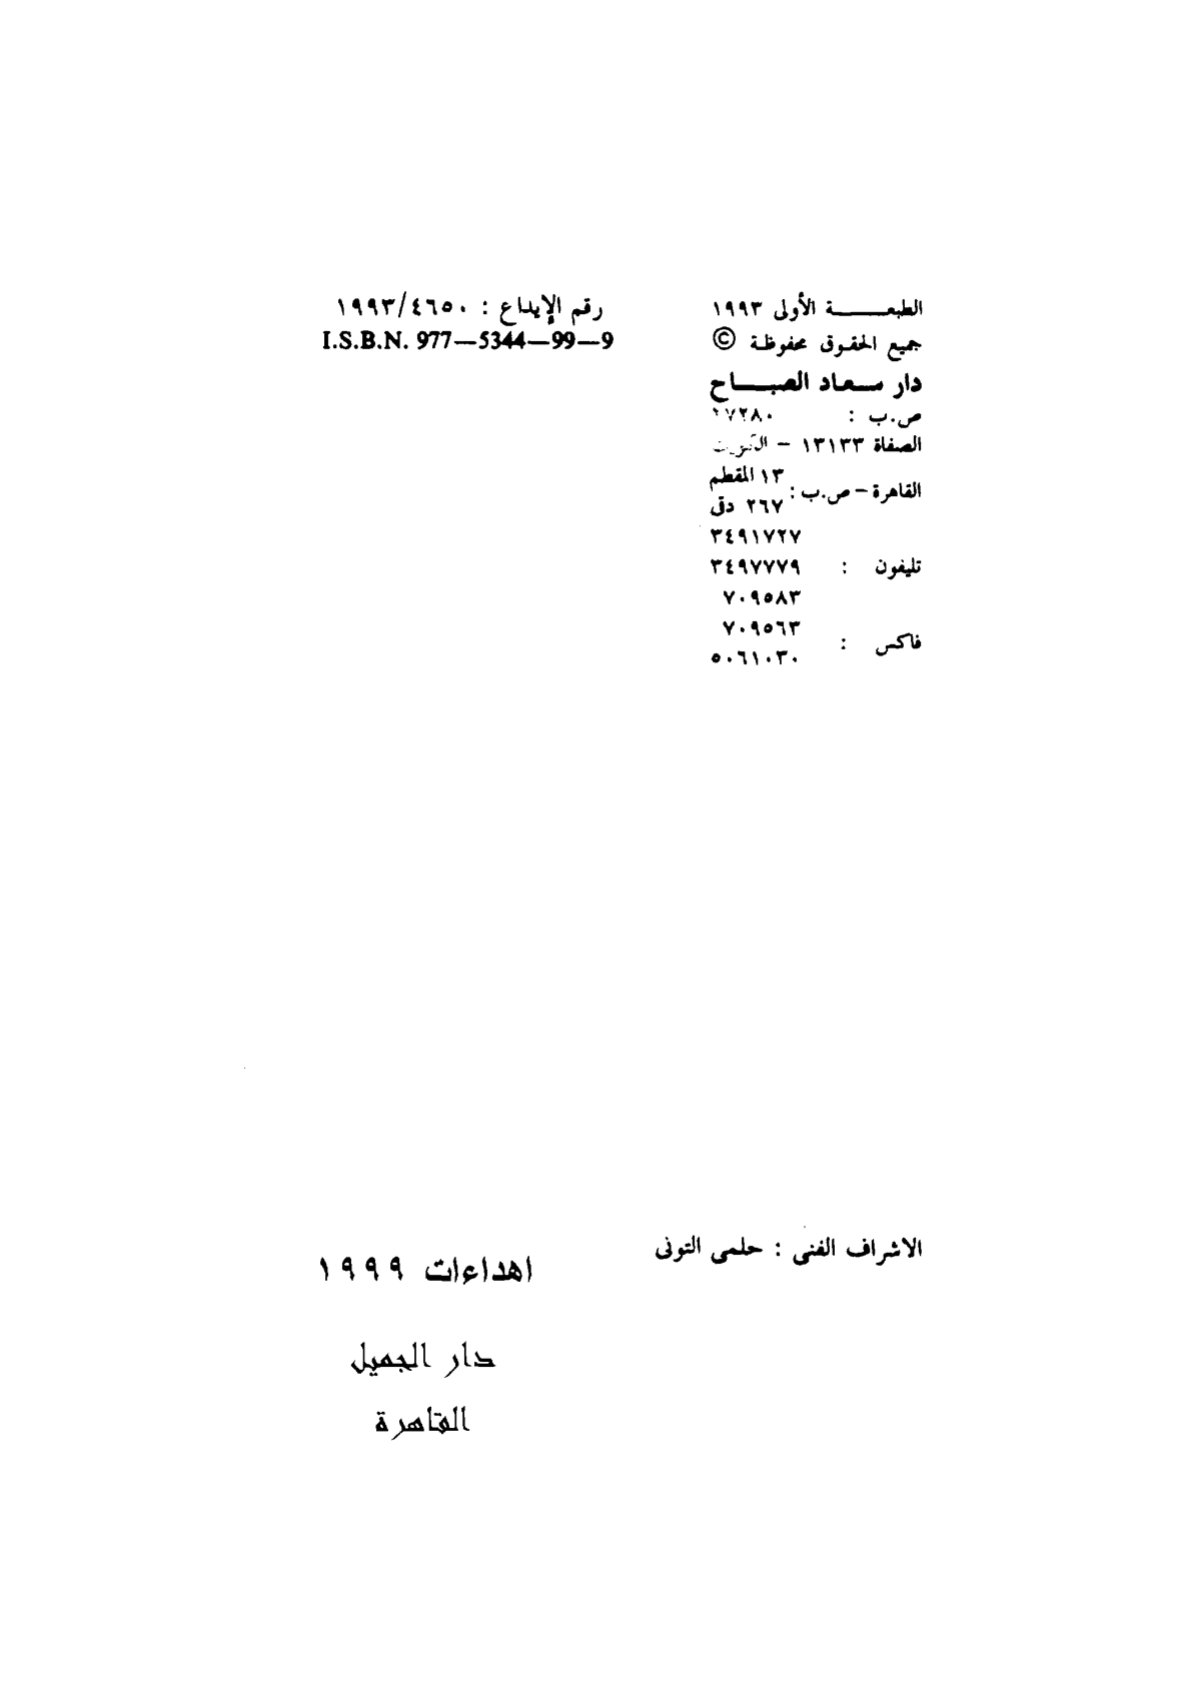 الطبعــــــة الأولى ١٩٩٣
جميع الحقوق محفوظة ©
دار سـعاد الصبـــاح
ص.ب : ٢٧٢٨٠
الصفاة ١٣١٣٣ – الكويت
القاهرة – ص.ب : ١٣ المقطم
٢٦٧ دقى
٣٤٩١٧٢٧
تليفون : ٣٤٩٧٧٧٩
٧٠٩٥٨٣
٧٠٩٥٦٣
فاكس :
٥٠٦١٠٣٠
رقم الإيداع : ١٩٩٣/٤٦٥٠
I.S.B.N. 977—5344—99—9
الاشراف الفنى : حلمى التونى
اهداءات ١٩٩٩
دار الجميل
القاهرة